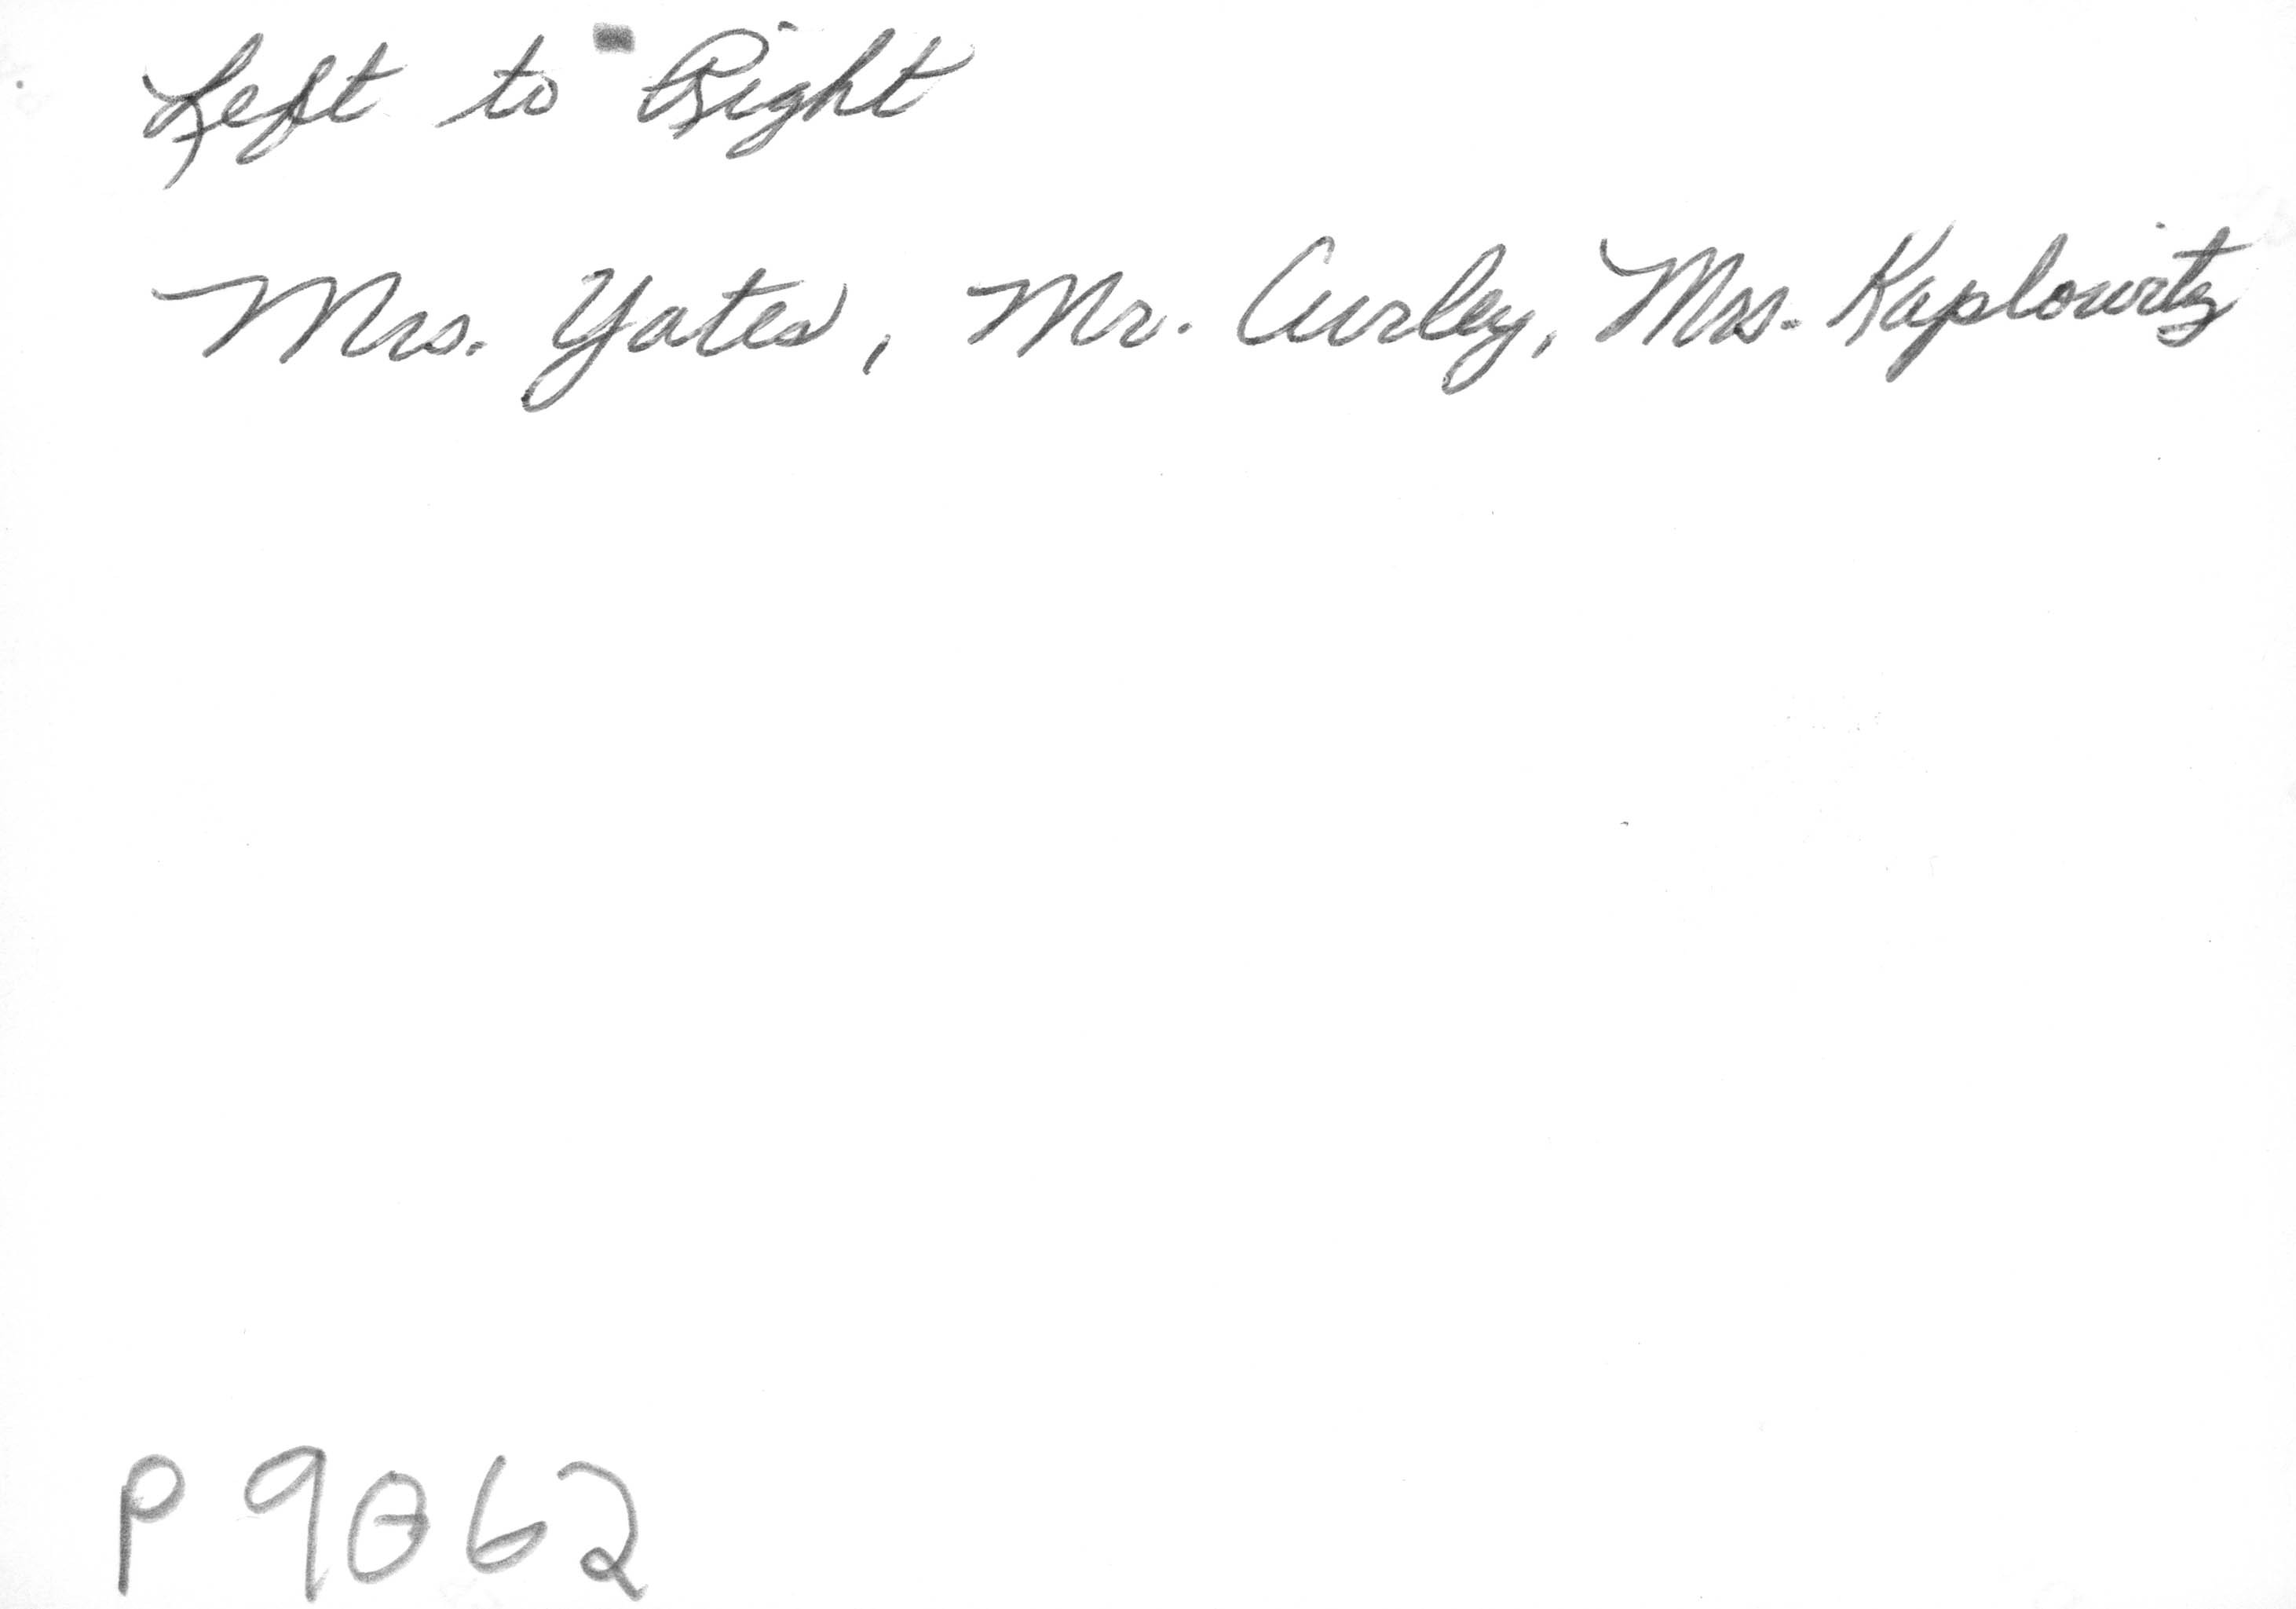 Left to Right
Mrs. Yates, Mr. Curley, Mrs. Kaplowitz
P 9062